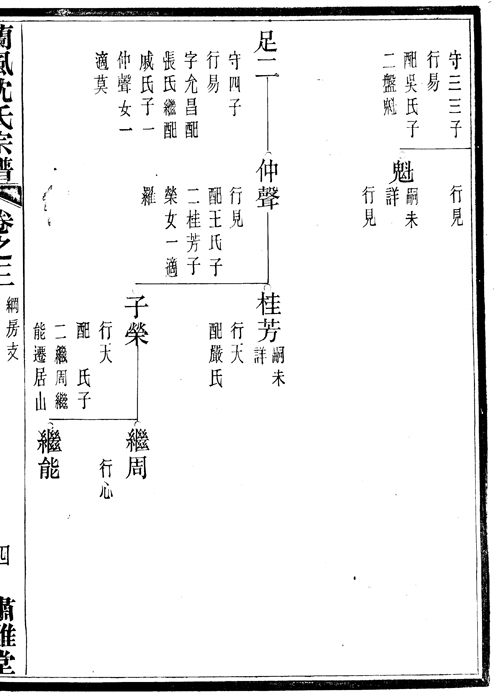 守三三子
行易
配吳氏子
二盤魁
行見
魁
嗣未
詳
行見
足二
守四子
行易
字允昌配
張氏繼配
戚氏子一
仲聲女一
適莫
仲聲
行見
配王氏子
二桂芳子
榮女一適
羅
桂芳
嗣未
詳
行大
配嚴氏
子榮
行大
配 氏子
二繼周繼
能遷居山
繼周
行心
繼能
蘭風沈氏宗譜
卷之三
綱房支
四
肅雝堂